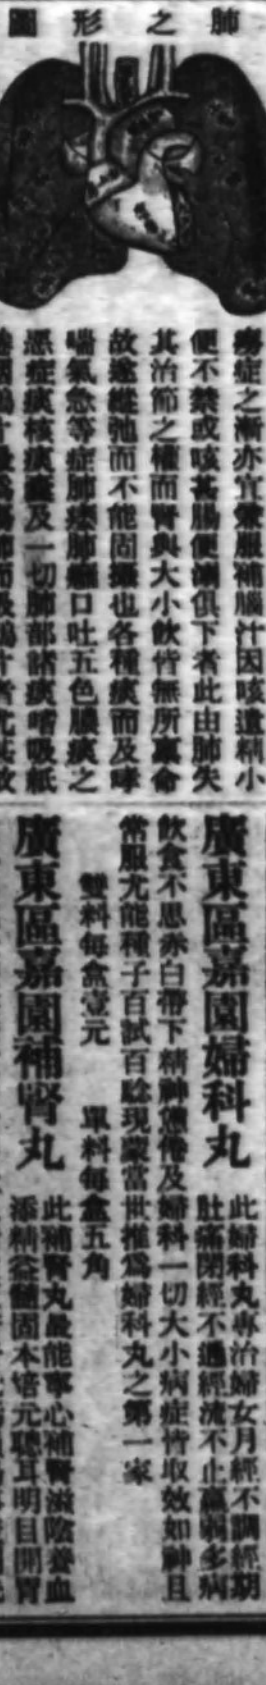 肺之形圖
癆症之漸亦宜兼服補腦汁因咳遺精小
便不禁或咳甚腸便瀉俱下者此由肺失
其治節之權而腎與大小飲皆無所稟命
故遂縱弛而不能固攝也各種痰而及哮
喘氣急等症肺痿肺癰口吐五色膿痰之
惡症痰核痰癧及一切肺部諸痰嗜吸紙
廣東區嘉園婦科丸
此婦科丸專治婦女月經不調經期
肚痛閉經不通經流不止羸弱多病
飲食不思赤白帶下精神倦及婦科一切大小病症皆取效如神且
常服尤能種子百試百驗現蒙當世推爲婦科丸之第一家
雙料每盒壹元 單料每盒五角
廣東區嘉園補腎丸
此補腎丸最能寧心補腎滋陰養血
添精益髓固本培元聰耳明目開胃